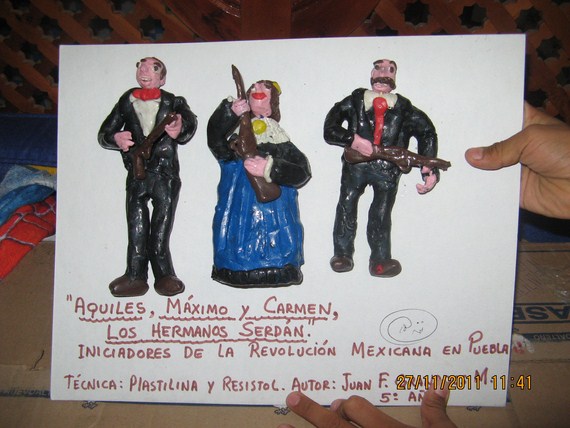 "AQUILES, MÁXIMO Y CARMEN,
LOS HERMANOS SERDÁN".
INICIADORES DE LA REVOLUCIÓN MEXICANA EN PUEBLA
TÉCNICA: PLASTILINA Y RESISTOL. AUTOR: JUAN F. M
5º
27/11/2011 11:41